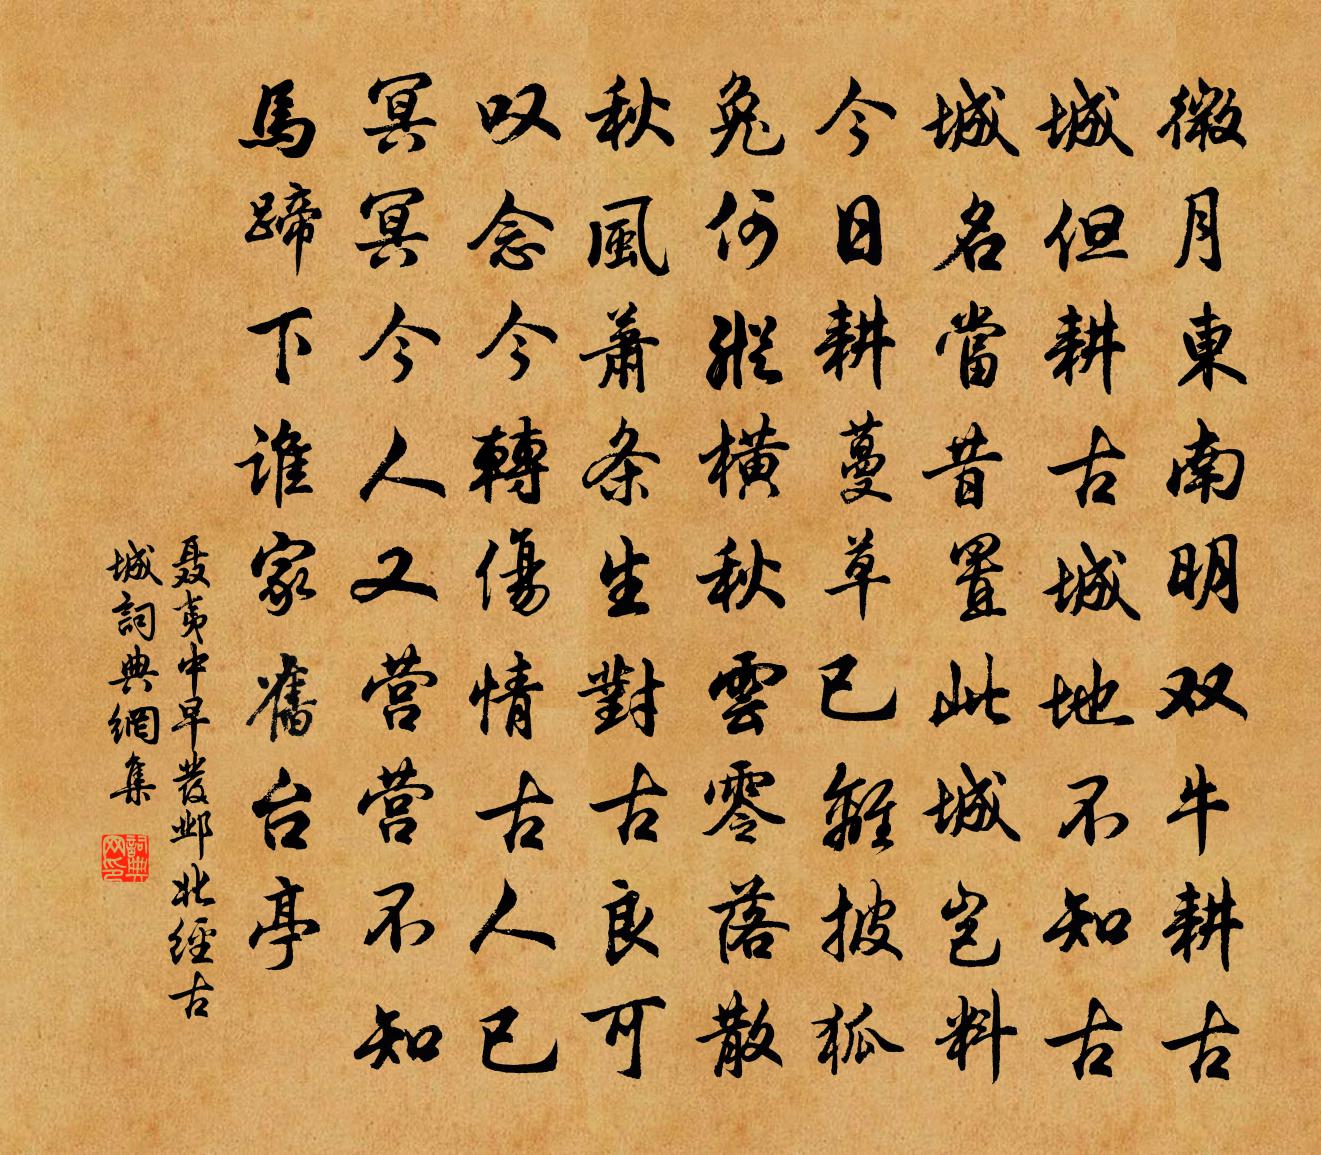 微月東南明双牛耕古
城但耕古城地不知古
城名當昔置此城岂料
今日耕蔓草已離披狐
兔何縱橫秋雲零落散
秋風蕭条生對古良可
叹念今轉傷情古人已
冥冥今人又营营不知
馬蹄下谁家舊台亭
聂夷中早發邺北經古
城詞典網集
詞典网印